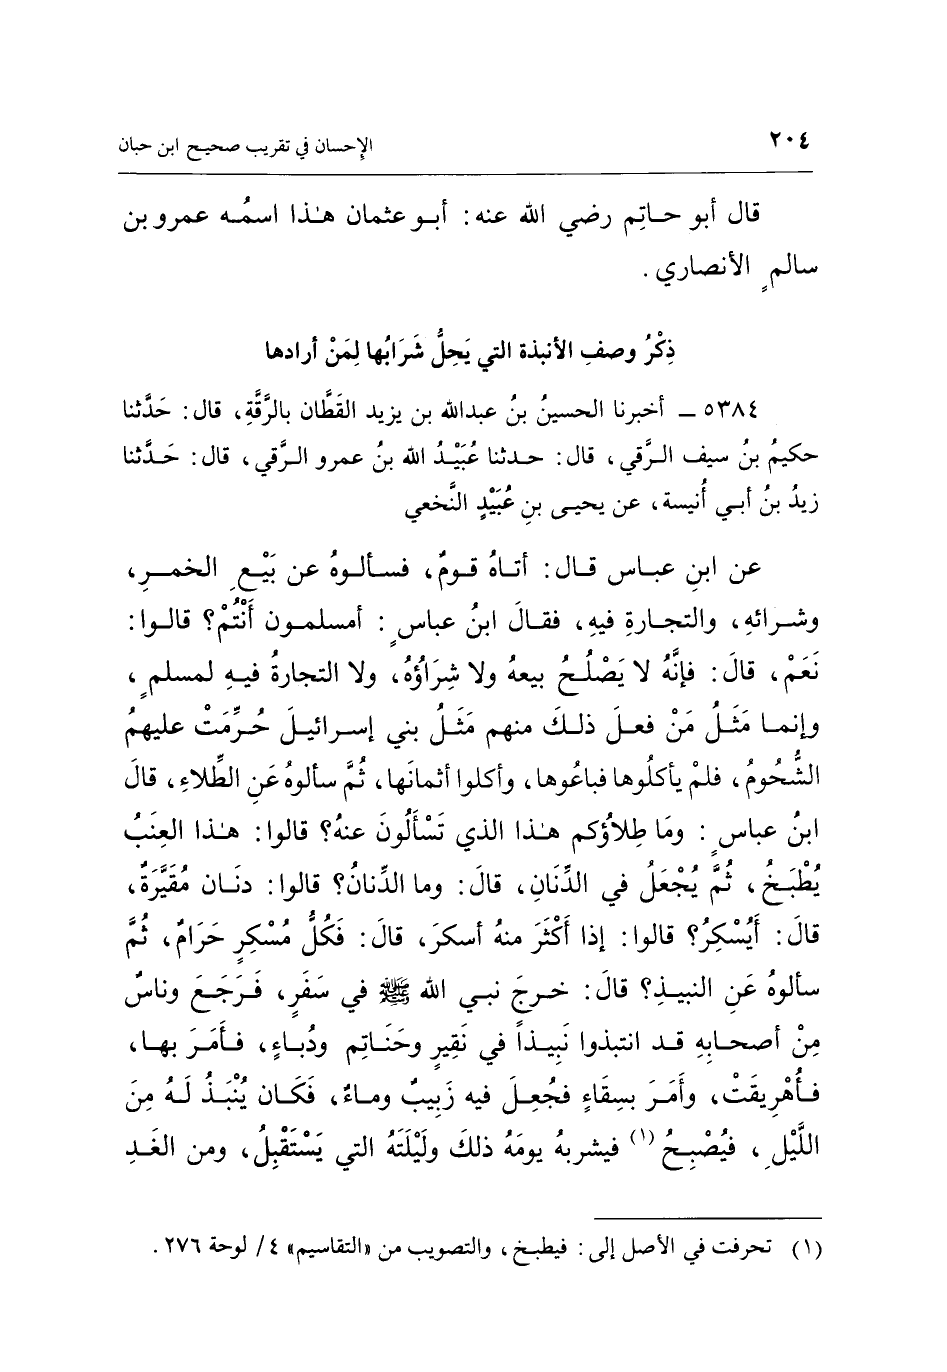 ٢٠٤ الإحسان في تقريب صحيح ابن حبان
قال أبو حاتِم رضي الله عنه: أبو عثمان هٰذا اسمُه عمرو بن
سالمٍ الأنصاري.
ذِكْرُ وصفِ الأنبذة التي يَحِلُّ شَرَابُها لِمَنْ أرادها
٥٣٨٤ ـ أخبرنا الحسينُ بنُ عبدالله بن يزيد القَطَّان بالرَّقَّةِ، قال: حَدَّثنا
حكيمُ بنُ سيف الرَّقي، قال: حدثنا عُبَيْدُ الله بنُ عمرو الرَّقي، قال: حَدَّثنا
زيدُ بنُ أبي أُنيسة، عن يحيى بنِ عُبَيْدٍ النَّخعي
عن ابنِ عباس قال: أتاهُ قومٌ، فسألوهُ عن بَيْعِ الخمرِ،
وشرائهِ، والتجارةِ فيهِ، فقالَ ابنُ عباسٍ: أمسلمون أَنْتُمْ؟ قالوا:
نَعَمْ، قالَ: فإنَّهُ لا يَصْلُحُ بيعهُ ولا شِرَاؤُهُ، ولا التجارةُ فيهِ لمسلمٍ،
وإنما مَثَلُ مَنْ فعلَ ذلكَ منهم مَثَلُ بني إسرائيلَ حُرِّمَتْ عليهمُ
الشُّحُومُ، فلمْ يأكلُوها فباعُوها، وأكلوا أثمانَها، ثُمَّ سألوهُ عَنِ الطِّلاءِ، قالَ
ابنُ عباسٍ: ومَا طِلاؤُكم هٰذا الذي تَسْأَلُونَ عنهُ؟ قالوا: هٰذا العِنَبُ
يُطْبَخُ، ثُمَّ يُجْعَلُ في الدِّنَانِ، قالَ: وما الدِّنانُ؟ قالوا: دنَان مُقَيَّرَةٌ،
قالَ: أَيُسْكِرُ؟ قالوا: إذا أَكْثَرَ منهُ أسكرَ، قالَ: فَكُلُّ مُسْكِرٍ حَرَامٌ، ثُمَّ
سألوهُ عَنِ النبيذِ؟ قالَ: خرجَ نبي الله ﷺ في سَفَرٍ، فَرَجَعَ وناسٌ
مِنْ أصحابِهِ قد انتبذوا نَبِيذاً في نَقِيرٍ وحَنَاتِم ودُباءٍ، فأمَرَ بها،
فأُهْرِيقَتْ، وأَمَرَ بسِقَاءٍ فجُعِلَ فيه زَبِيبٌ وماءٌ، فَكَان يُنْبَذُ لَهُ مِنَ
اللَّيْلِ، فيُصْبِحُ(١) فيشربهُ يومَهُ ذلكَ ولَيْلَتَهُ التي يَسْتَقْبِلُ، ومن الغَدِ
(١) تحرفت في الأصل إلى: فيطبخ، والتصويب من «التقاسيم» ٤/ لوحة ٢٧٦.